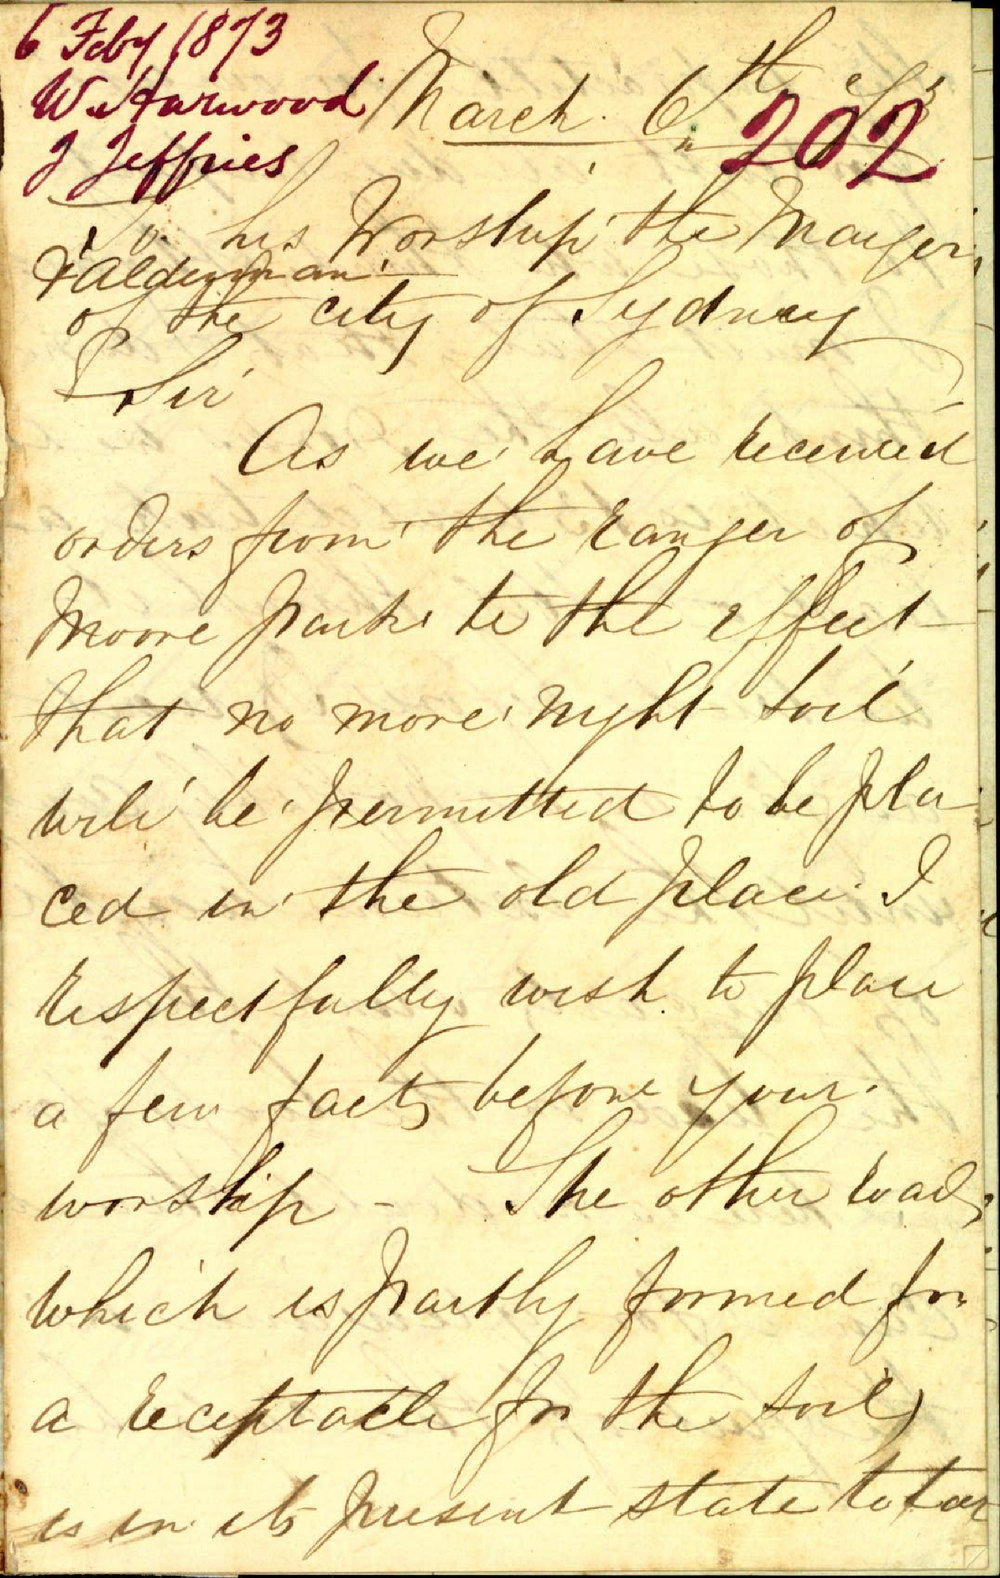 6 Feby 1873
W. Harwood
J Jeffries
March 6th /73
202
To his Worship the Mayor
& Alderman
of the city of Sydney
Sir
As we have received
orders from the ranger of
Moore Park to the effect
that no more night soil
will be permitted to be pla
ced in the old place I
respectfully wish to place
a few facts before your
worship - The other road,
which is partly formed for
a receptacle for the soil,
is in its present state